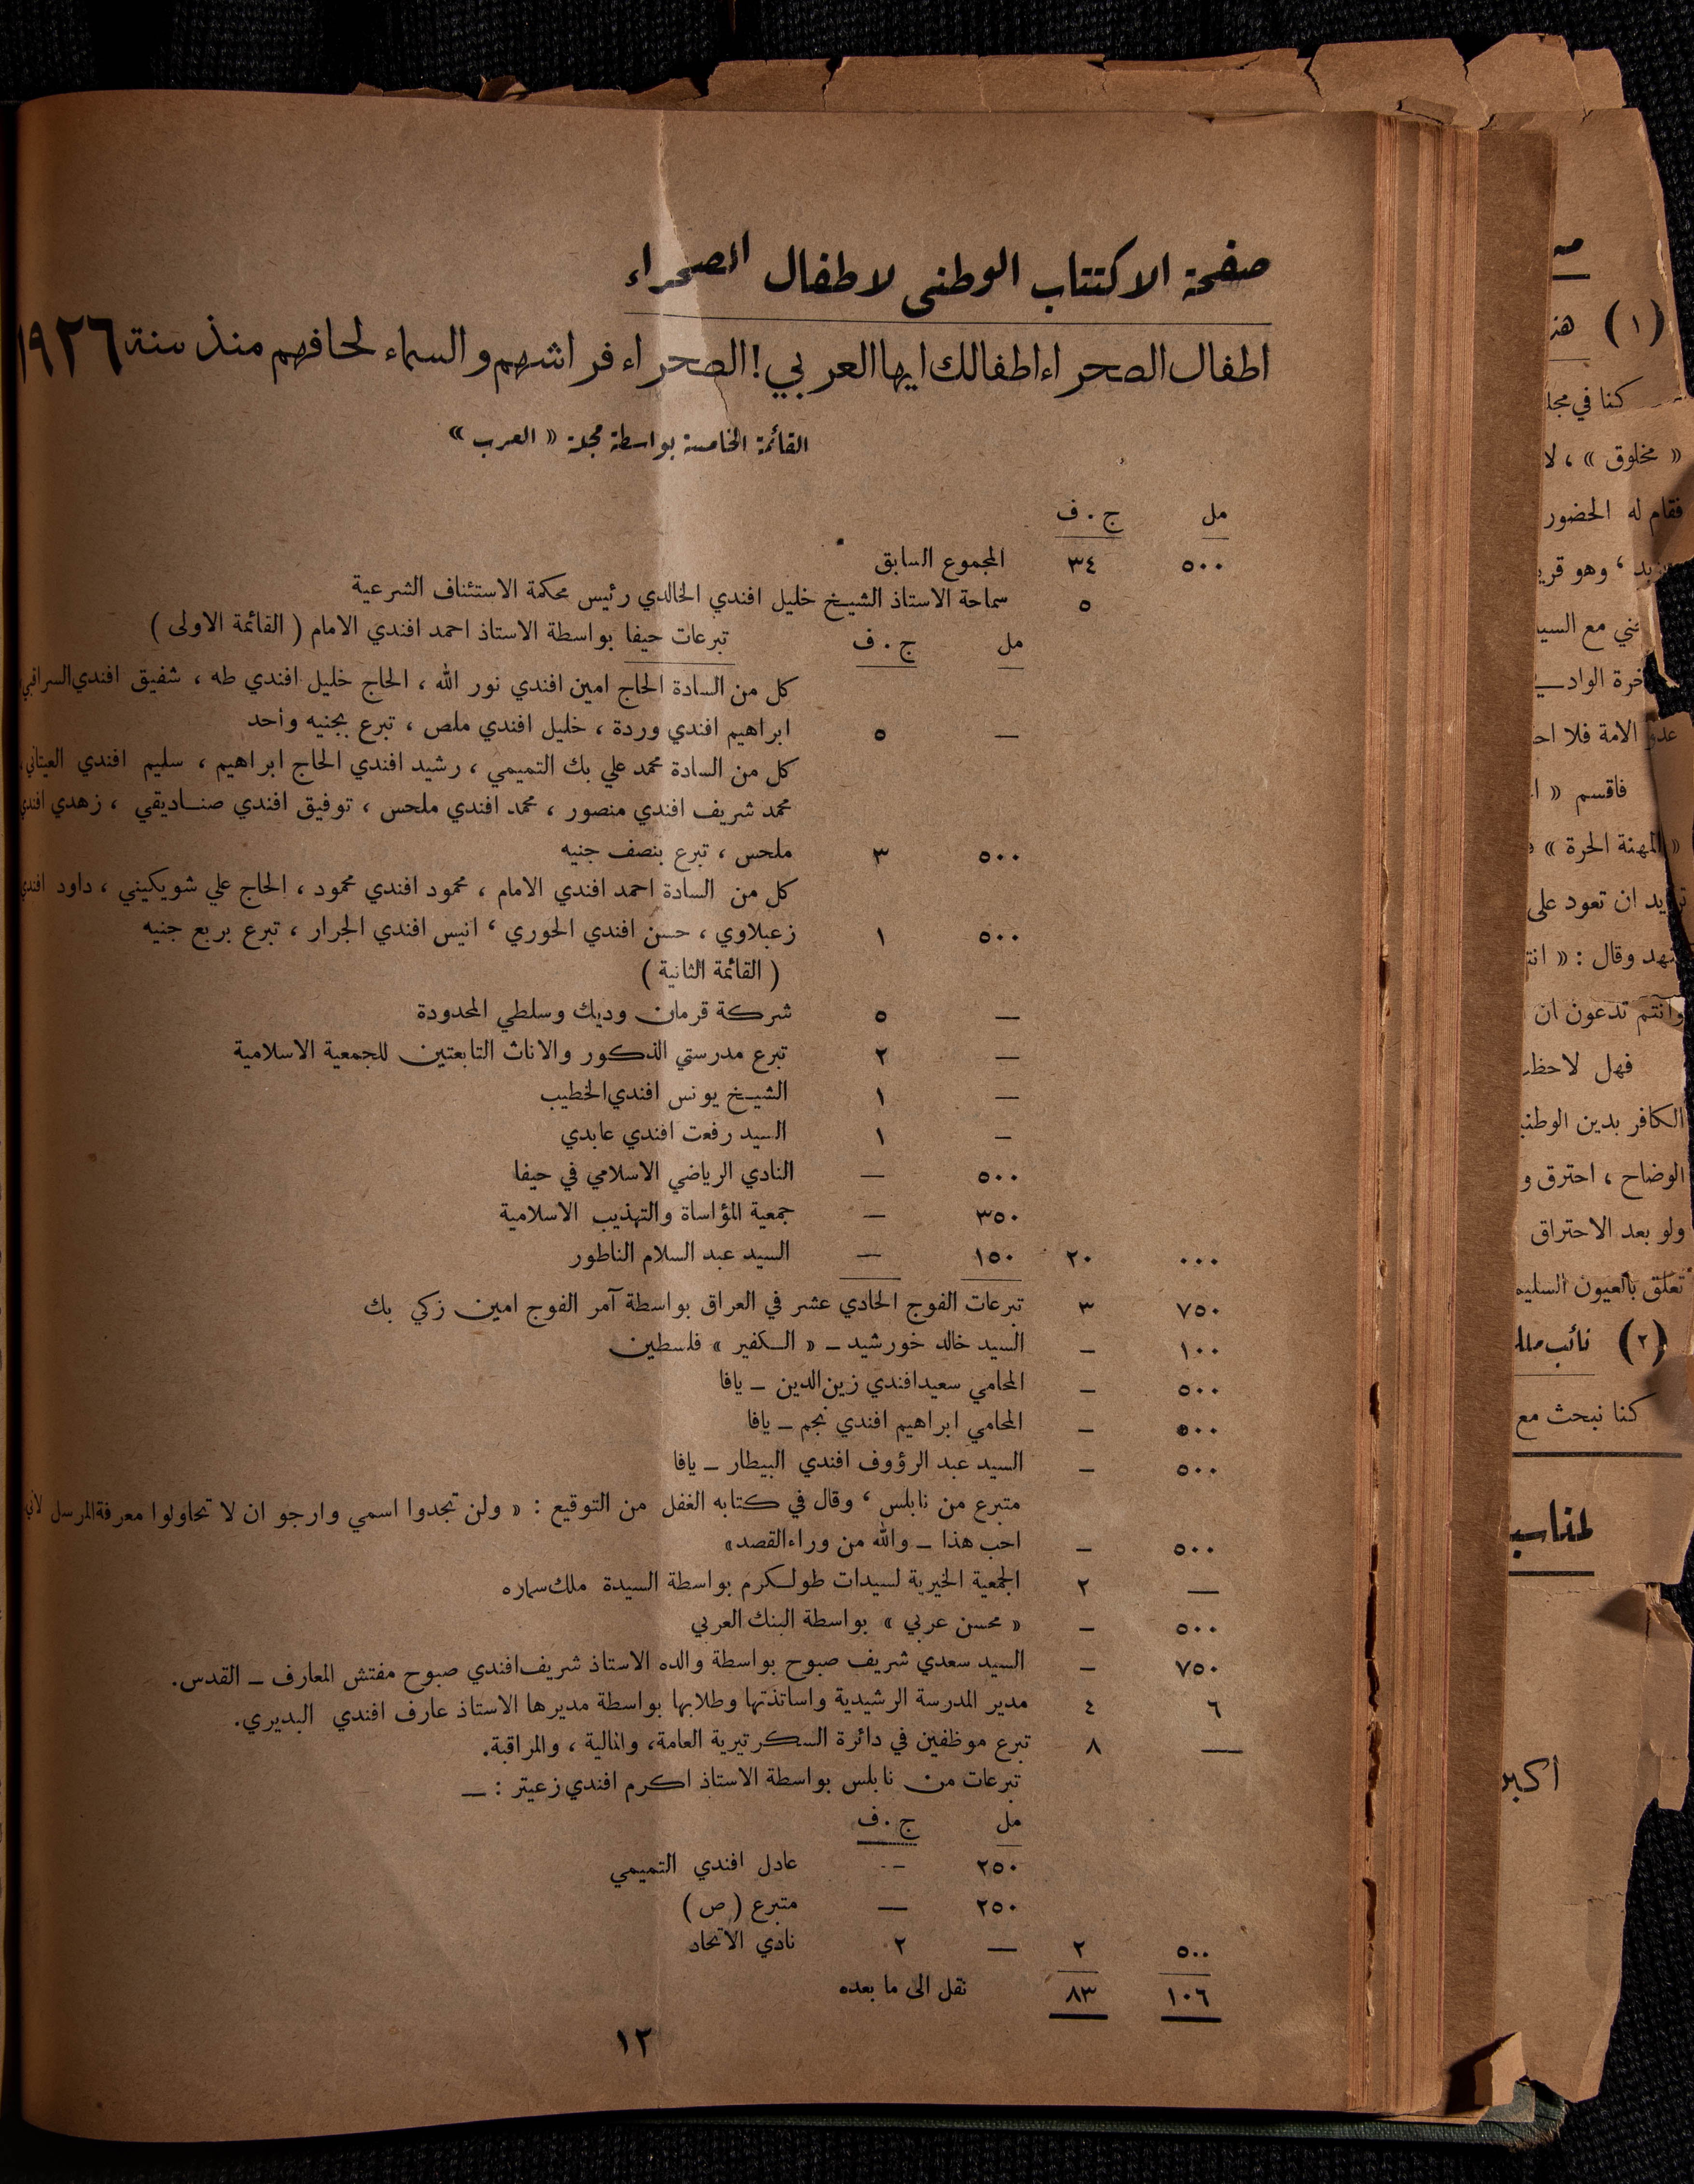 صفحة الاكتتاب الوطنى لاطفال الصحراء
اطفال الصحراء اطفالك ايها العربي! الصحراء فراشهم والسماء لحافهم منذ سنة ١٩٢٦
القائمة الخامسة بواسطة مجلة « العرب »
مل ج . ف
٥٠٠ ٣٤ المجموع السابق
٥ سماحة الاستاذ الشيخ خليل افندي الخالدي رئيس محكمة الاستئناف الشرعية
مل ج . ف تبرعات حيفا بواسطة الاستاذ احمد افندي الامام ( القائمة الاولى )
كل من السادة الحاج امين افندي نور الله ، الحاج خليل افندي طه ، شفيق افندي
— ٥ ابراهيم افندي وردة ، خليل افندي ملص ، تبرع بجنيه واحد
كل من السادة محمد علي بك التميمي ، رشيد افندي الحاج ابراهيم ، سليم افندي
محمد شريف افندي منصور ، محمد افندي ملحس ، توفيق افندي صناديقي ، زهدي افندي
٥٠٠ ٣ ملحس ، تبرع بنصف جنيه
كل من السادة احمد افندي الامام ، محمود افندي محمود ، الحاج علي شويكيني ، داود افندي
٥٠٠ ١ زعبلاوي ، حسن افندي الحوري ، انيس افندي الجرار ، تبرع بربع جنيه
( القائمة الثانية )
— ٥ شركة قرمان وديك وسلطي المحدودة
— ٢ تبرع مدرستي الذكور والاناث التابعتين للجمعية الاسلامية
— ١ الشيخ يونس افندي الخطيب
— ١ السيد رفعت افندي عابدي
٥٠٠ — النادي الرياضي الاسلامي في حيفا
٣٥٠ — جمعية المؤاساة والتهذيب الاسلامية
٠٠٠ ٢٠ ١٥٠ — السيد عبد السلام الناطور
٧٥٠ ٣ تبرعات الفوج الحادي عشر في العراق بواسطة آمر الفوج امين زكي بك
١٠٠ — السيد خالد خورشيد — « الكفير » فلسطين
٥٠٠ — المحامي سعيد افندي زين الدين — يافا
٥٠٠ — المحامي ابراهيم افندي نجم — يافا
٥٠٠ — السيد عبد الرؤوف افندي البيطار — يافا
متبرع من نابلس ، وقال في كتابه الغفل من التوقيع : « ولن تجدوا اسمي وارجو ان لا تحاولوا معرفة المرسل لأني
٥٠٠ — احب هذا — والله من وراء القصد»
— ٢ الجمعية الخيرية لسيدات طولكرم بواسطة السيدة ملك سماره
٥٠٠ — « محسن عربي » بواسطة البنك العربي
٧٥٠ — السيد سعدي شريف صبوح بواسطة والده الاستاذ شريف افندي صبوح مفتش المعارف — القدس.
٦ ٤ مدير المدرسة الرشيدية واساتذتها وطلابها بواسطة مديرها الاستاذ عارف افندي البديري.
— ٨ تبرع موظفين في دائرة السكرتيرية العامة، والمالية ، والمراقبة.
تبرعات من نابلس بواسطة الاستاذ اكرم افندي زعيتر : —
مل ج . ف
٢٥٠ — عادل افندي التميمي
٢٥٠ — متبرع ( ص )
٥٠٠ ٢ — ٢ نادي الاتحاد
١٠٦ ٨٣ نقل الى ما بعده
١٢
( ١ )
كنا في
« مخلوق » ، لا
فقام له الحضور
، وهو
مع
عدو الامة فلا
فاقسم «
« المهنة الحرة »
ان تعود على
وقال : «
وانتم تدعون ان
فهل
الكافر بدين
الوضاح ، احترق و
ولو بعد الاحتراق
تعلق بالعيون
( ٢ ) نائب
كنا نبحث مع